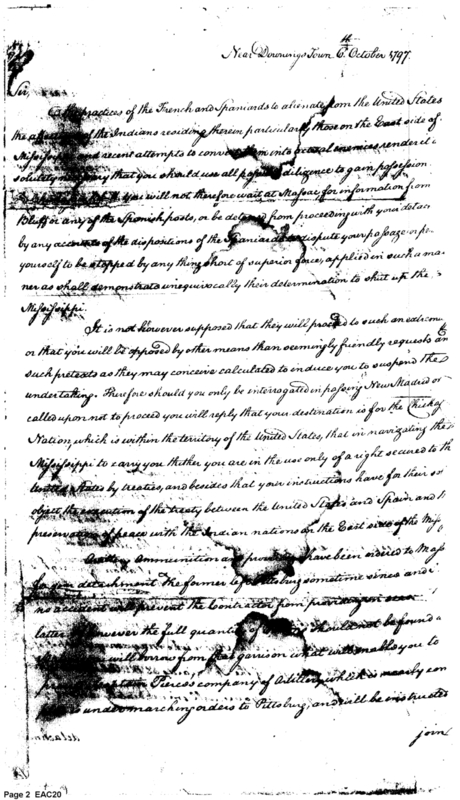 Near Downings Town 4 October 1797
Sir,
The practices of the French and Spaniards to alienate from the United States
the affections of the Indians residing therein particularly those on the East side of
Mississippi and recent attempts to convert them into actual enemies render it
solutely necessary that you should use all possible diligence to gain possession
you will not therefore wait at Massac for information from
Bluff or any of the Spanish posts, or be deterred from proceeding with your detach
by any accounts of the dispositions of the Spaniards to dispute your passage or pe
yourself to be stopped by any thing short of superior force, applied in such a ma-
ner as shall demonstrate unequivocally their determination to shut up the
Mississippi.
It is not however supposed that they will proceed to such an extreme
or that you will be opposed by other means than seemingly friendly requests an
such pretexts as they may conceive calculated to induce you to suspend the
undertaking. Therefore should you only be interrogated in passing New Madrid or
called upon not to proceed you will reply that your destination is for the Chickas
Nation, which is within the territory of the United States, that in navigating the
Mississippi to carry you thither you are in the use only of a right secured to th
United States by treaties, and besides that your instructions have for their so
object the execution of the treaty between the United States and Spain and t
preservation of peace with the Indian nations on the East side of the Mis
Ammunition and have been ordered to Mass
for your detachment the former left Pittsburg sometime since and
no accident will prevent the Contractor from
latter. If however the full quantity of should not be found a
will borrow from that garrison what will enable you to
Captain Pierces company of Artillery which is nearly com
is under marching orders to Pittsburg, and will be instructed
join
Page 2 EAC20